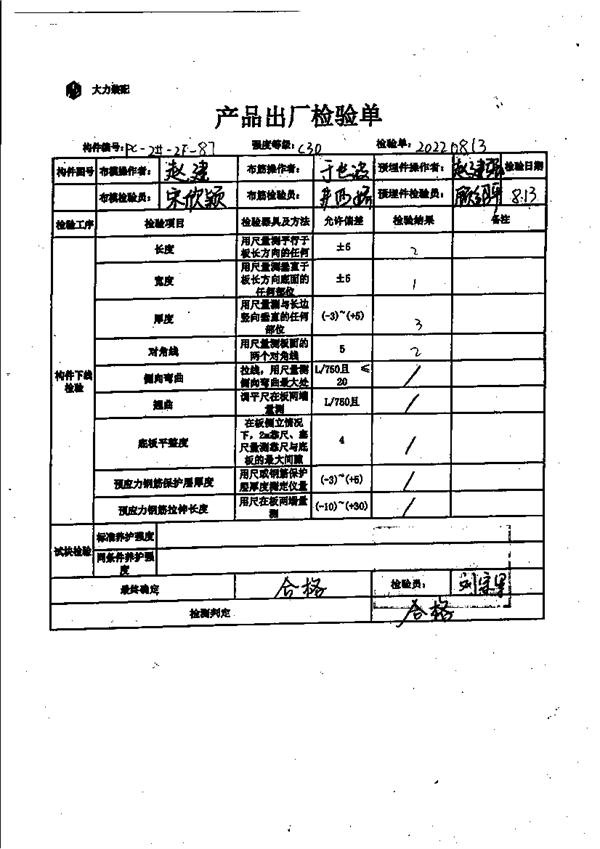 大力装配
产品出厂检验单
构件编号: PC-2#-2F-87 强度等级: C30 检验单: 20220813
构件图号 布模操作者: 赵建 布筋操作者: 预埋件操作者: 检验日期
布模检验员: 宋欣颖 布筋检验员: 预埋件检验员: 8.13
检验工序 检验项目 检验器具及方法 允许偏差 检验结果 备注
构件下线检验
长度 用尺量测平行于板长方向的任何 ±5 2
宽度 用尺量测垂直于板长方向底面的任何部位 ±5 1
厚度 用尺量测与长边竖向垂直的任何部位 (-3)~(+5) 3
对角线 用尺量测板面的两个对角线 5 2
侧向弯曲 拉线,用尺量测侧向弯曲最大处 L/750且 ≤20 /
翘曲 调平尺在板两端量测 L/750且 /
底板平整度 在板侧立情况下,2m靠尺、塞尺量测靠尺与底板的最大间隙 4 /
预应力钢筋保护层厚度 用尺或钢筋保护层厚度测定仪量 (-3)~(+5) /
预应力钢筋拉伸长度 用尺在板两端量测 (-10)~(+30) /
试块检验 标准养护强度
同条件养护强度
最终确定 合格 检验员:
检测判定 合格